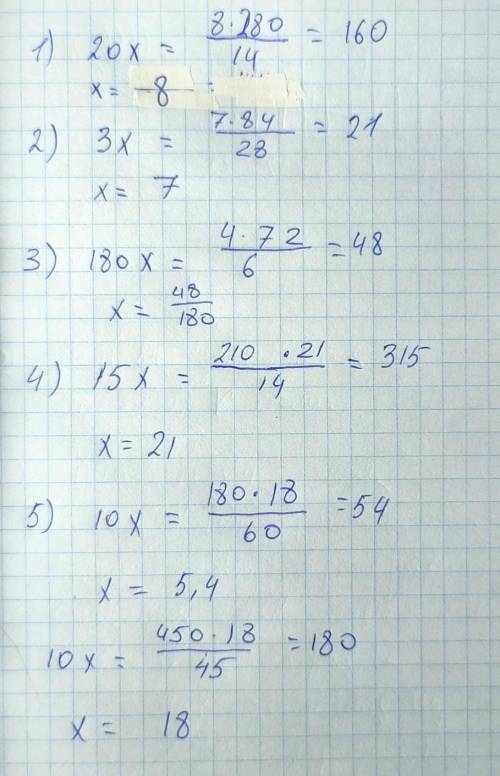 1) 20x = 8·280/14 = 160
x = 8
2) 3x = 7·84/28 = 21
x = 7
3) 180x = 4·72/6 = 48
x = 48/180
4) 15x = 210·21/14 = 315
x = 21
5) 10x = 180·18/60 = 54
x = 5,4
10x = 450·18/45 = 180
x = 18